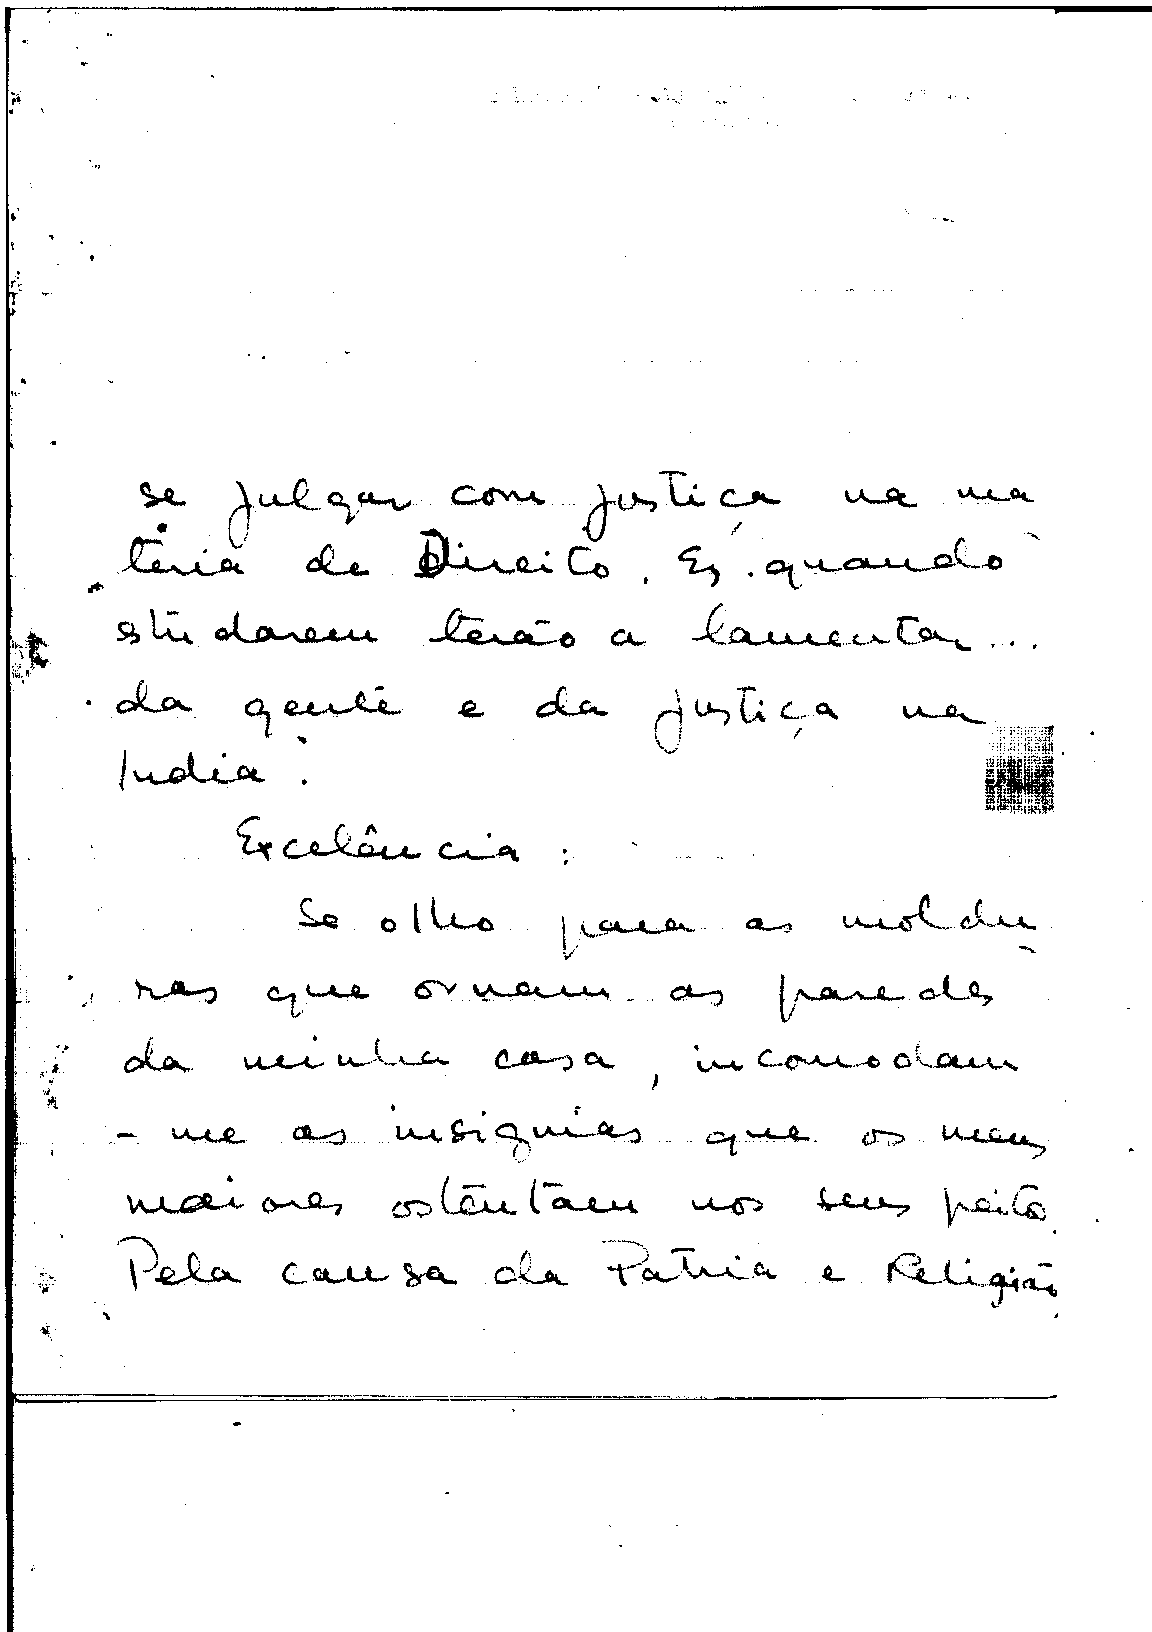 se julgar com justiça na ma
teria de Direito. Es quando
studarem terão a lamentar...
da gente e da justiça na
India.
Excelência:
Se olho para as moldu
ras que ornam as paredes
da minha casa, incomodam
- me as insignias que os meus
maiores ostentam nos seus peito
Pela causa da Patria e Religião